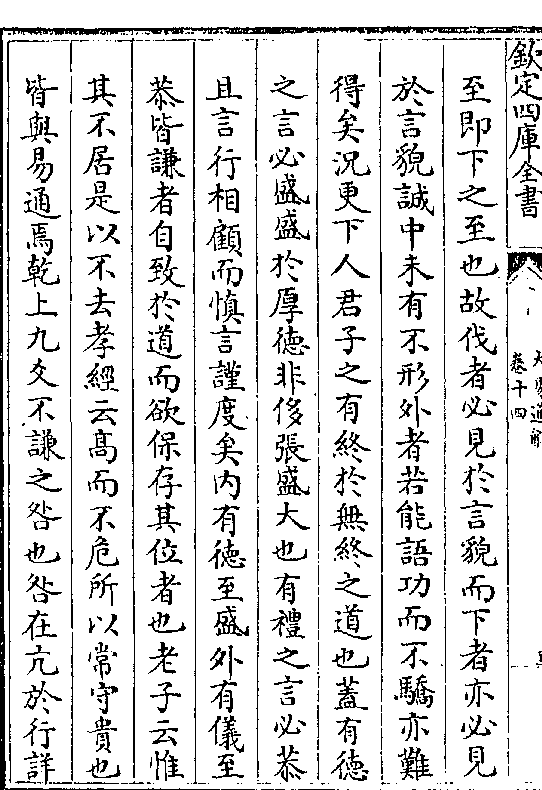 欽定四庫全書
卷十四
至即下之至也故伐者必見於言貌而下者亦必見
於言貌誠中未有不形外者若能語功而不驕亦難
得矣況更下人君子之有終於無終之道也蓋有德
之言必盛盛於厚德非侈張盛大也有禮之言必恭
且言行相顧而慎言謹度矣內有德至盛外有儀至
恭皆謙者自致於道而欲保存其位者也老子云惟
其不居是以不去孝經云高而不危所以常守貴也
皆與易通焉乾上九爻不謙之咎也咎在亢於行詳